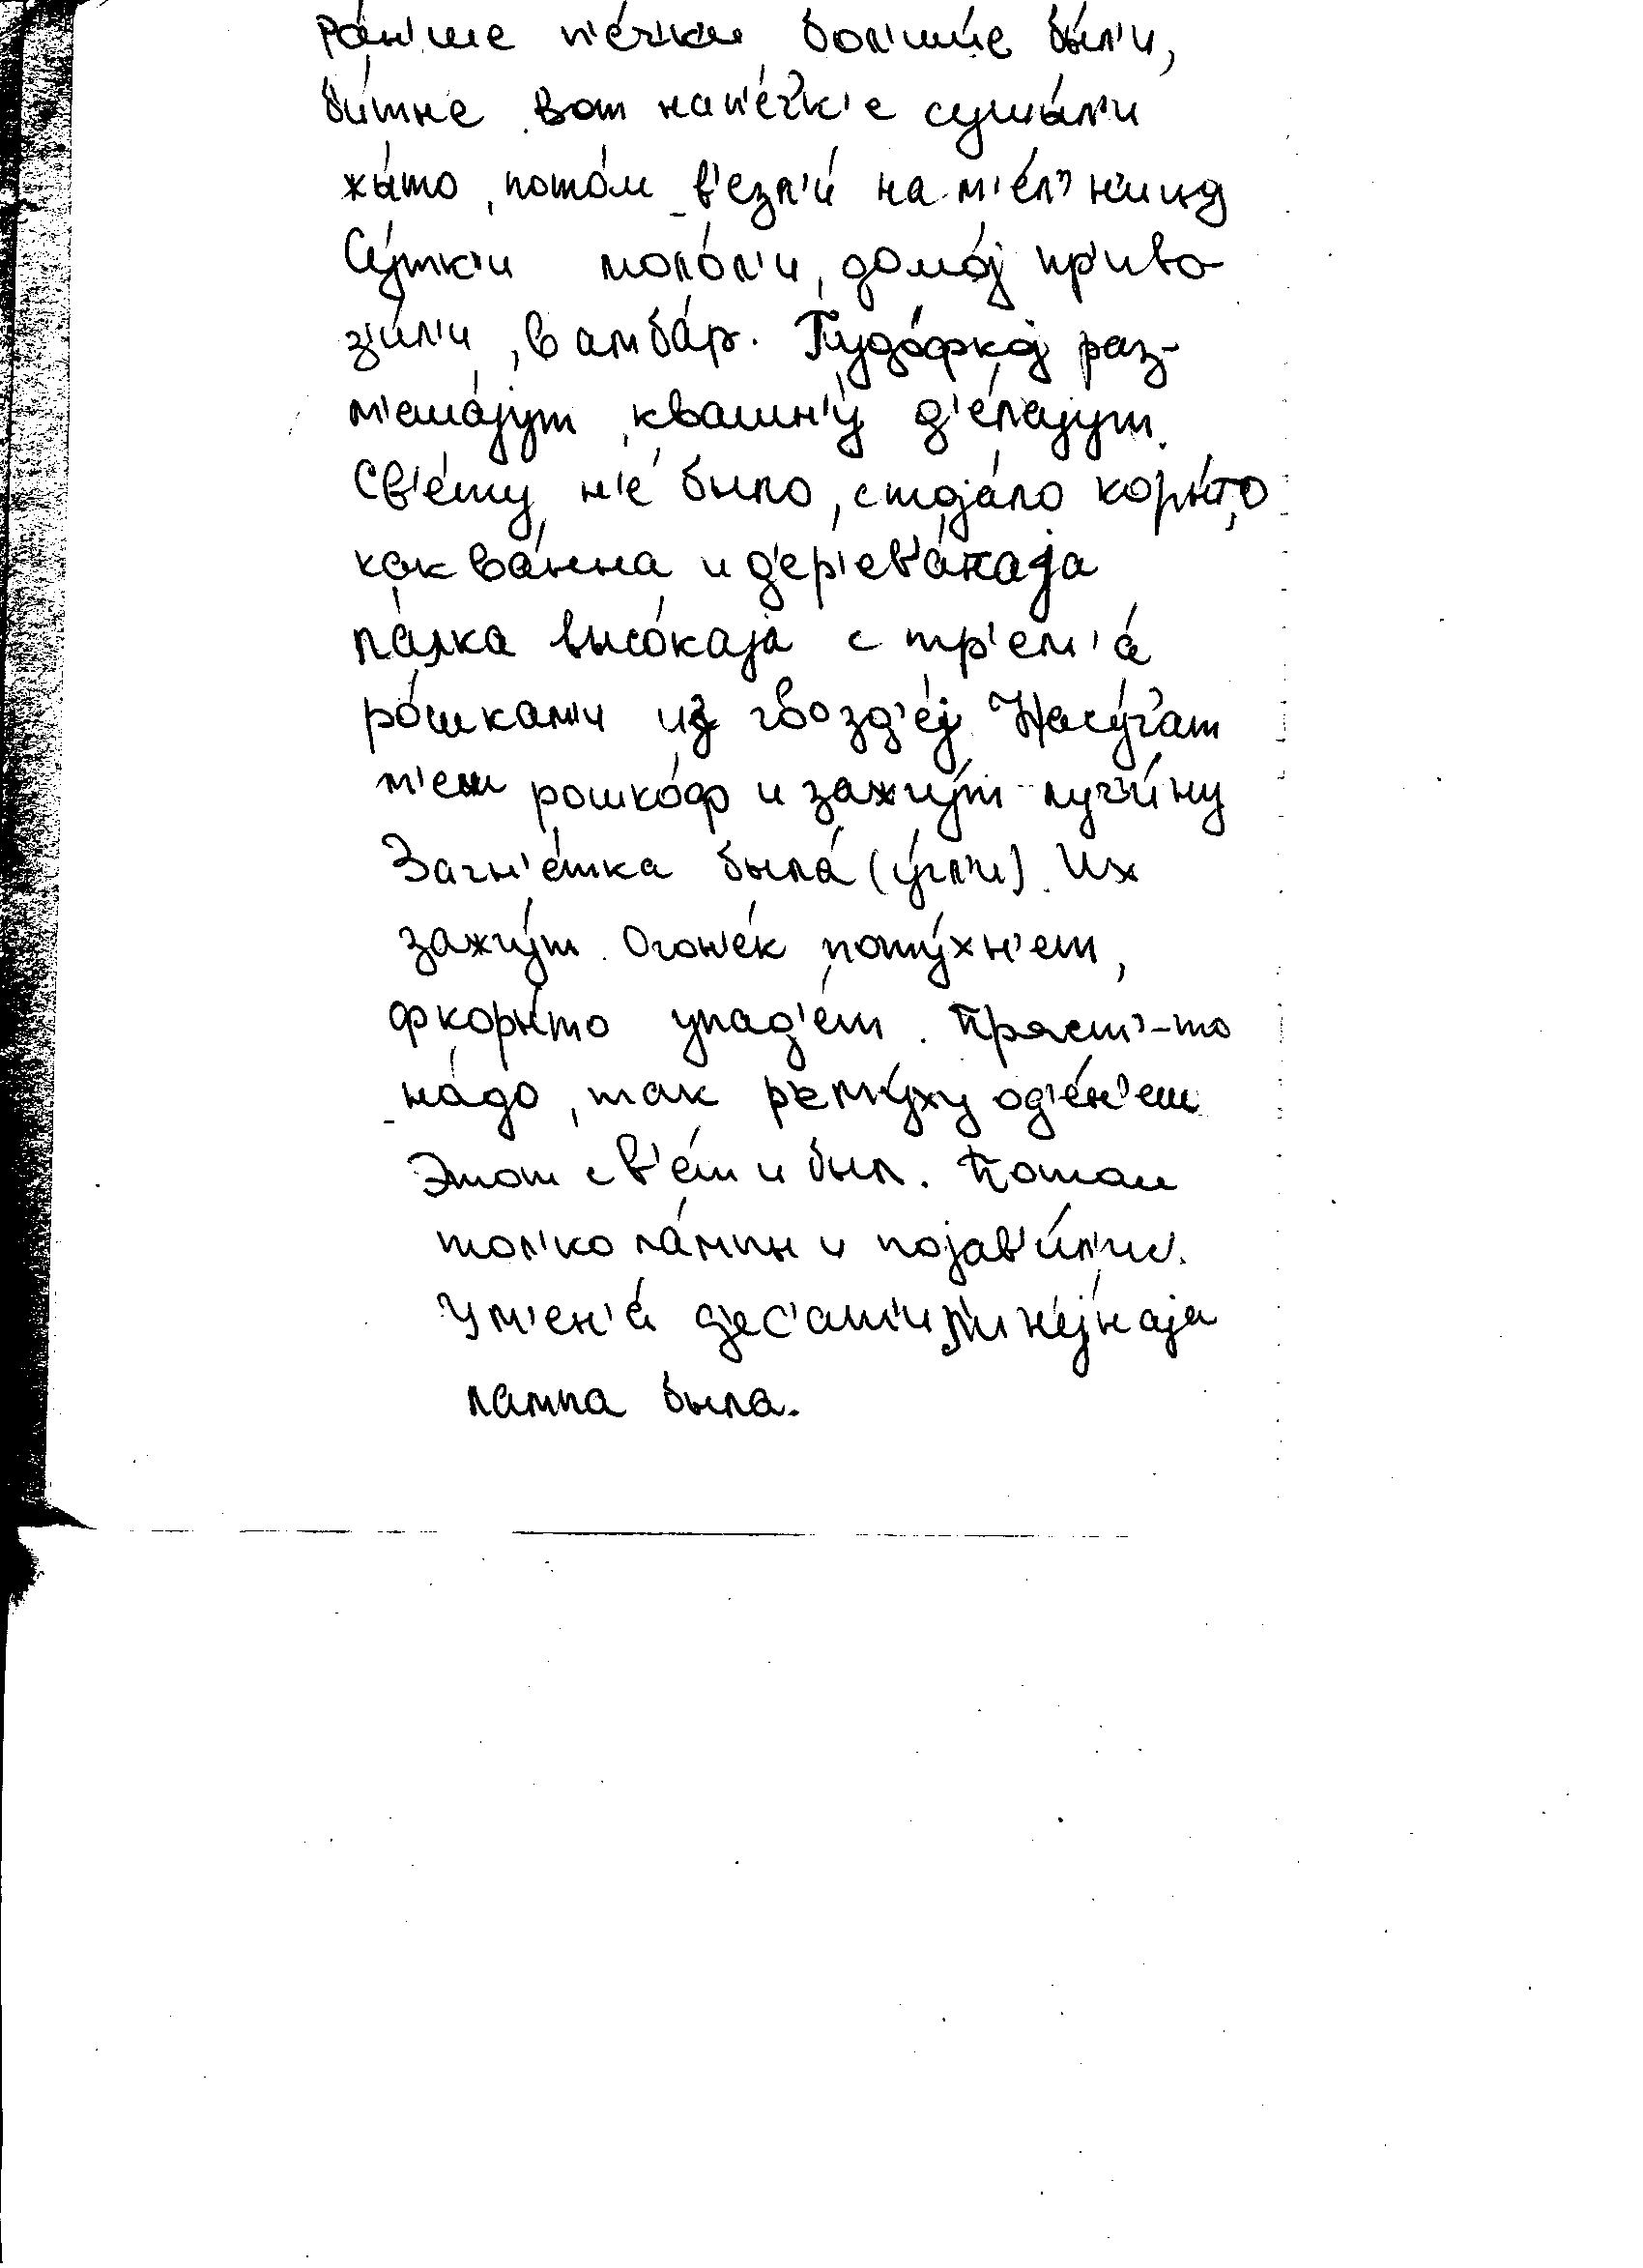 ра́н'ше п'е́ч'ки бол'ши́е бы́л'и,
би́тые. Вот на п'е́ч'к'е сушы́л'и
жы́то, пото́м в'езл'и́ на м'е́л'н'ицу
Су́тк'и моло́л'и, домо́ј пр'иво-
з'и́л'и, в амба́р. Пудо́фкој раз-
м'еша́јут, квашн'у́ д'е́лајут.
Св'е́ту н'е́ было, стоја́ло коры́то
как ва́нна и д'ер'ев'а́наја
па́лка высо́каја с тр'ем'а́
ро́шкам'и из гвозд'е́ј. Насу́ч'ат
м'еш рошко́ф и зажгу́т луч'и́ну
Загн'е́тка была́ (у́гл'и). Их
зажгу́т. Огон'е́к поту́хн'ет,
ф коры́то упад'е́т. Пряст'-то
на́до, так р'ему́ху од'е́н'еш
Этот св'е́т и был. Потом
тол'ко ла́мпы и појав'и́л'ис'.
У м'ен'а́ д'ес'ат'ил'ине́јнаја
лампа была.